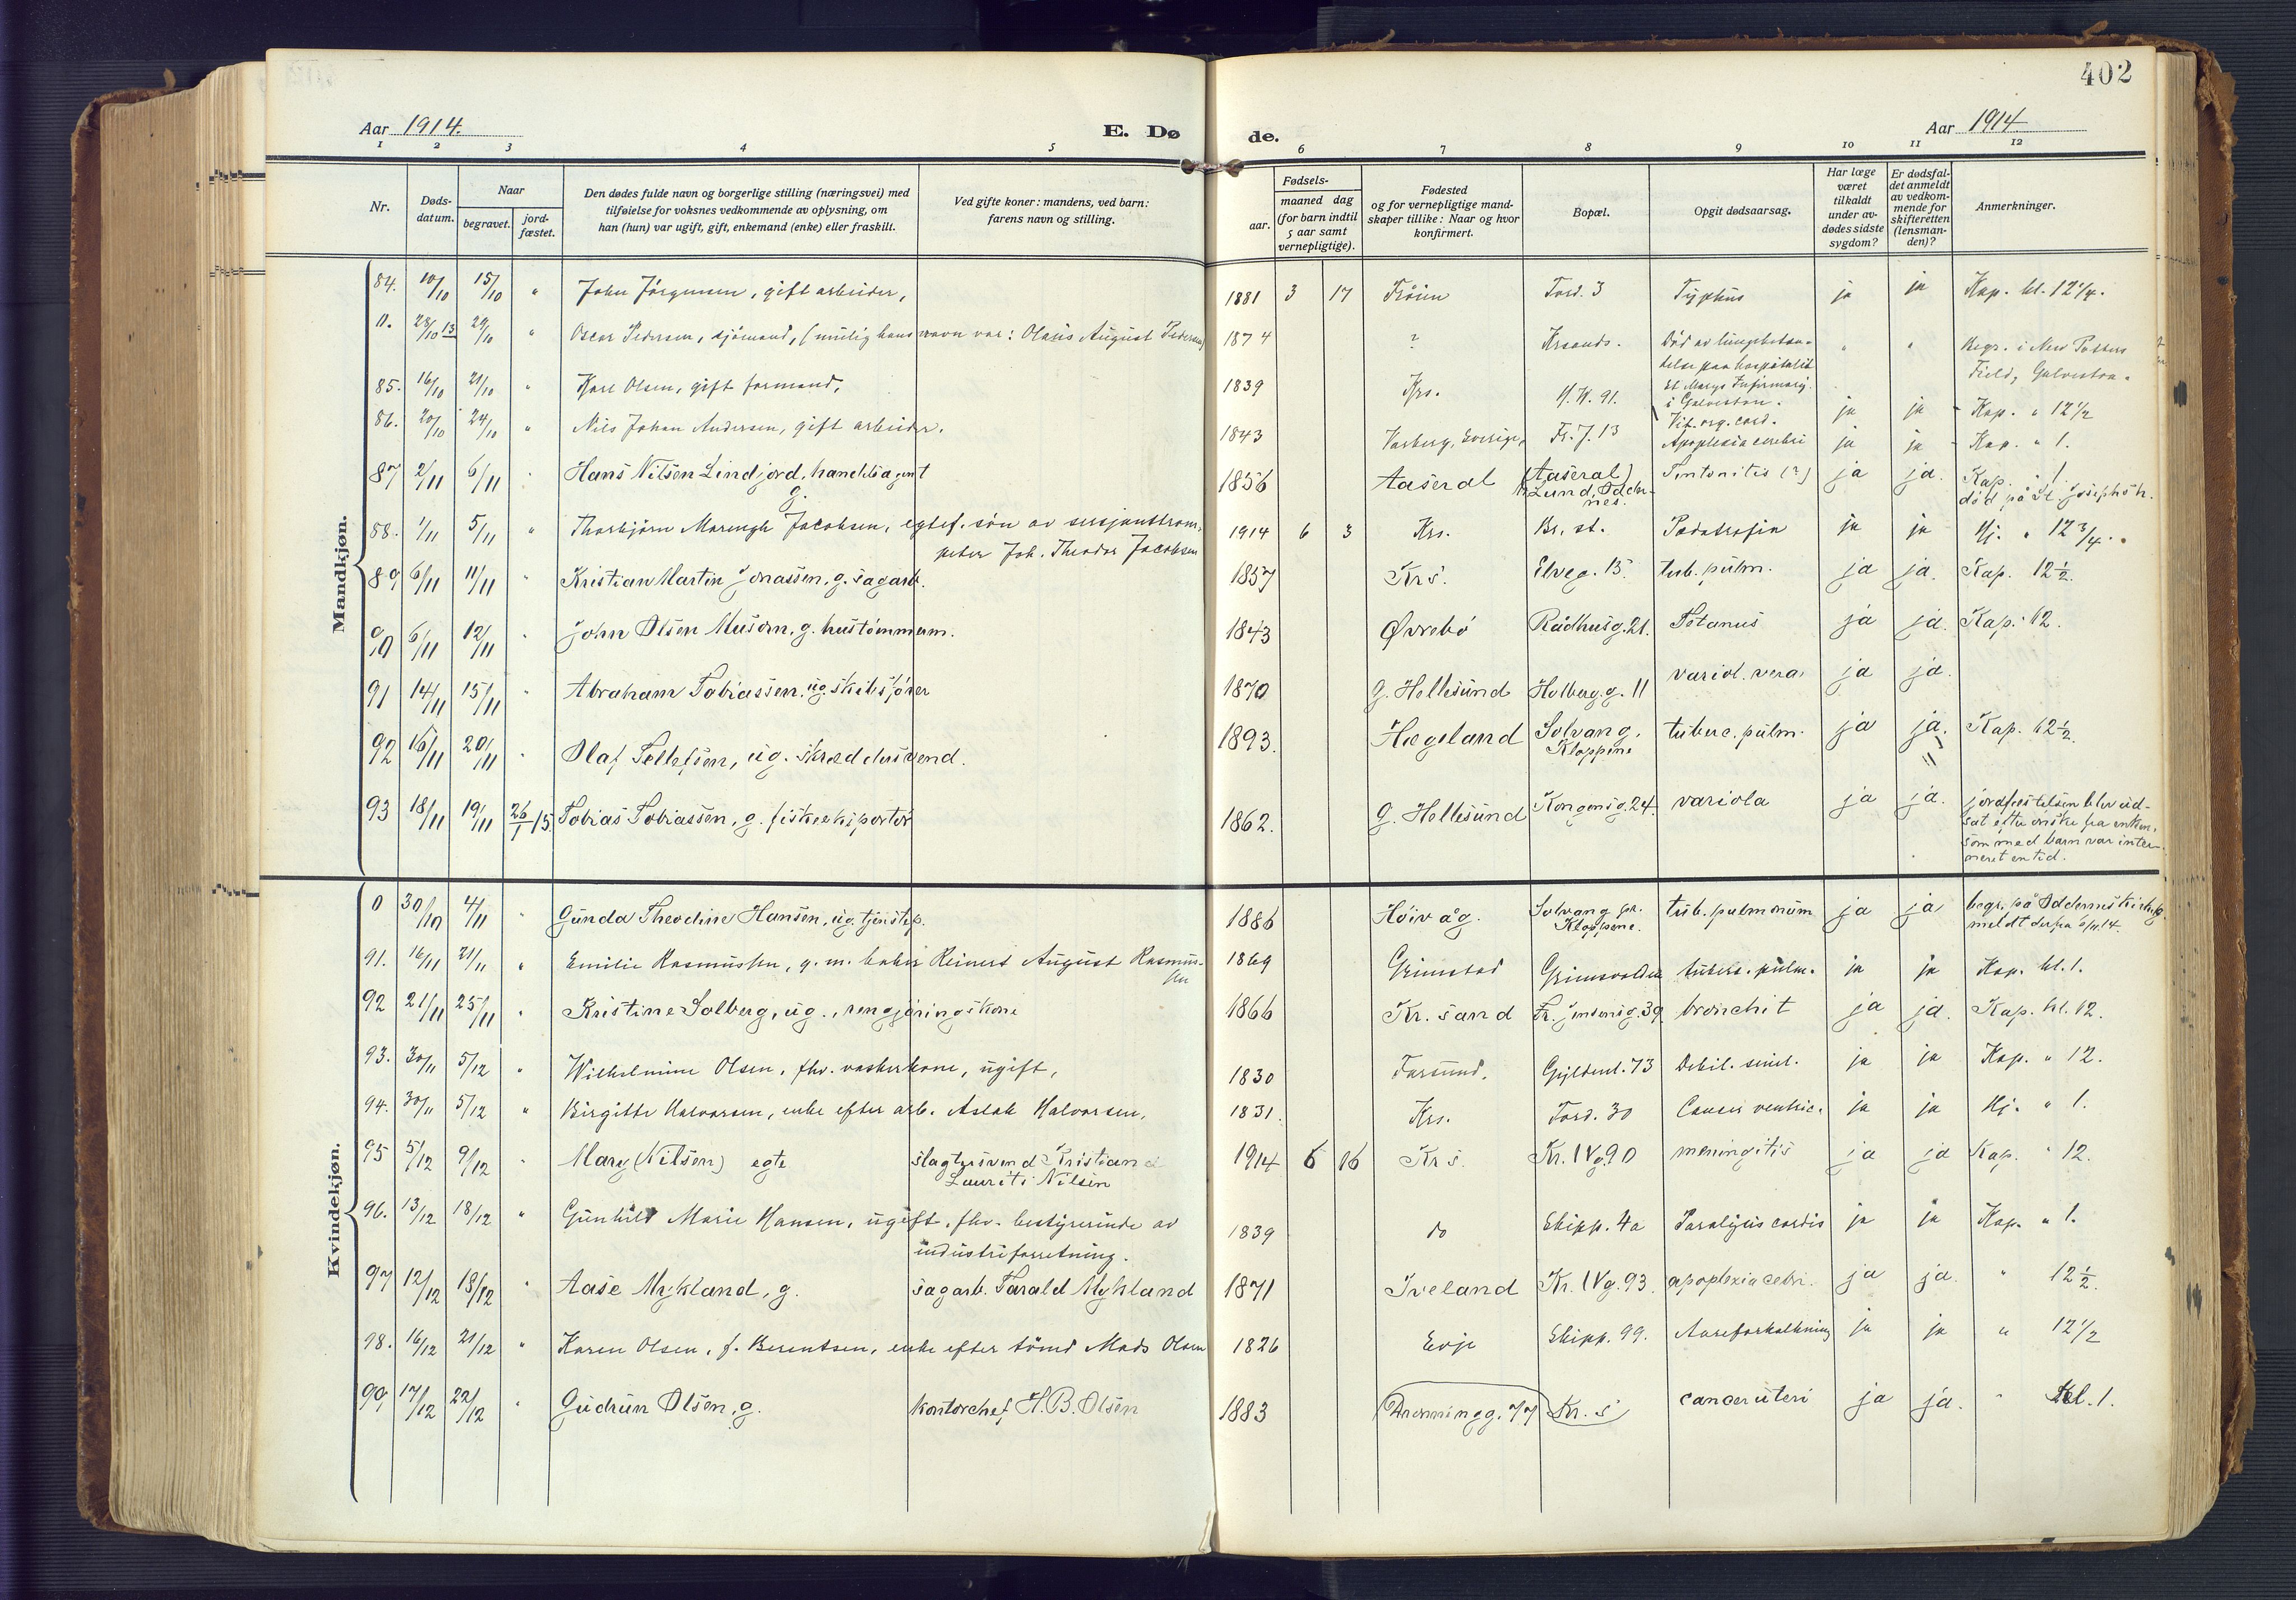 402
Aar 1914.
E. Dø
de.
Aar 1914
1 2 3 4 5 6 7 8 9 10 11 12
Nr.
Døds-
datum.
Naar
begravet.
jord-
fæstet.
Den dødes fulde navn og borgerlige stilling (næringsvei) med
tilføielse for voksnes vedkommende av oplysning, om
han (hun) var ugift, gift, enkemand (enke) eller fraskilt.
Ved gifte koner: mandens, ved barn:
farens navn og stilling.
Fødsels-
aar.
maaned dag
(for barn indtil
5 aar samt
vernepligtige).
Fødested
og for vernepligtige mand-
skaper tillike: Naar og hvor
konfirmert.
Bopæl.
Opgit dødsaarsag.
Har læge
været
tilkaldt
under av-
dødes sidste
sygdom?
Er dødsfal-
det anmeldt
av vedkom-
mende for
skifteretten
(lensman-
den)?
Anmerkninger.
Mandkjøn.
84. 10/10 15/10 " John Jörgensen, gift arbeider, 1881 3 17 Tord. 3 Typhus ja ja Kap. kl. 12 1/4.
0. 28/10 13 29/10 " Oscar Pedersen, sjömand, (mulig hans navn var: Olaus August Pedersen) 1874 ? Krsands. Död av lungebetæn-
delse paa hospitalet
St Marys Infirmary
i Galveston. " " Begr. i New Potters
Field, Galveston.
85. 16/10 21/10 " Karl Olsen, gift formand, 1839 Krs. H. W. 91. Vit. org. cord. ja ja Kap. " 12 1/2
86. 20/10 24/10 " Nils Johan Andersen, gift arbeider. 1843 Varberg, Sverige, Fr. J. 13 Apoplexia cerebri ja ja Kap. " 1.
87 2/11 6/11 " Hans Nilsen Lindjord, handelsagent
g. 1856 Aaseral (Aaseral)
Lund, Odder-
nes. (?) ja ja. Kap. " 1
död på St. Josephs h.
88. 1/11 5/11 " Thorbjörn Jacobsen, egtef. sön av sersjanttrom-
peter Joh. Theodor Jacobsen 1914 6 3 Krs. Br. st. Pædatrofia ja ja Hj. " 12 3/4.
89 6/11 11/11 " Kristian Martin Jonassen, g. sagarb. 1857 Krs. Elveg. 15. tub. pulm. ja ja. Kap. 12 1/2.
90 6/11 12/11 " John Olsen Musom, g. hustömmerm. 1843 Øvrebö Rådhusg. 21. Tetanus ja ja. Kap. 12.
91 14/11 15/11 " Abraham Tobiassen, ug. skibsförer 1870 G. Hellesund Holberg. g. 11 variol. vera ja ja.
92 16/11 20/11 " Olaf Tellefsen, ug. skræddersvend. 1893. Hægeland Solvang,
Kloppene tuberc. pulm. ja ja. Kap. 12 1/2.
93 18/11 19/11 26/1 15. Tobias Tobiassen, g. fiskeeksportör 1862. G. Hellesund Kongensg. 24. variola ja ja. jordfæstelsen blev ud-
sat efter önske fra enken,
som med barn var inter-
neret en tid.
Kvindekjøn.
0 30/10 4/11 " Gunda Theodine Hansen, ug. tjenstep. 1886 Höivåg. Solvang pr.
Kloppene. tub. pulmonum ja ja begr. på Oddernes kirkeg.
meldt derfra 6/11 14.
91. 16/11 21/11 " Emilie Rasmussen, g. m. baker Reinert August Rasmus-
sen 1869 Grimstad tuberc. pulm. ja ja Kap. kl. 1.
92 21/11 25/11 " Kristine Solberg, ug., rengjöringskone 1866 Kr. sand Fr. Jensensg. 39 bronchit ja ja. Kap. kl. 12.
93. 30/11 5/12 " Wilhelmine Olsen, fhv. vaskerkone, ugift, 1830 Farsund. Gyldenl. 73 Debil. senil. ja ja Kap. " 12.
94. 30/11 5/12 " Birgitte Halvorsen, enke efter arb. Aslak Halvorsen, 1831. Krs. Tord. 30 Cancer ventric. ja ja Hj. " 1.
95 5/12 9/12 " Mary (Nilsen) egte slagtersvend Kristian
Laurits Nilsen 1914 6 16 Krs. Kr. IV g. 90 meningitis ja ja Kap. " 12.
96. 13/12 18/12 " Gunhild Marie Hansen, ugift, fhv. bestyrerinde av
industriforretning. 1839 do Skipp. 4a Paralysis cordis ja ja Kap. " 1.
97 12/12 18/12 " Aase Mykland, g. sagarb. Tarald Mykland 1871 Iveland Kr. IV g. 93. apoplexia cebri. ja ja. " 12 1/2.
98. 16/12 21/12 " Karen Olsen, f. Berentsen, enke efter tömd Mads Olsen 1826 Evje Skipp. 99. Aareforkalkning ja ja " 12 1/2
99 17/12 22/12 " Gudrun Olsen, g. kontorchef H. B. Olsen 1883 Dronningg. 77 Kr. s cancer uteri ja ja. " Kl. 1.